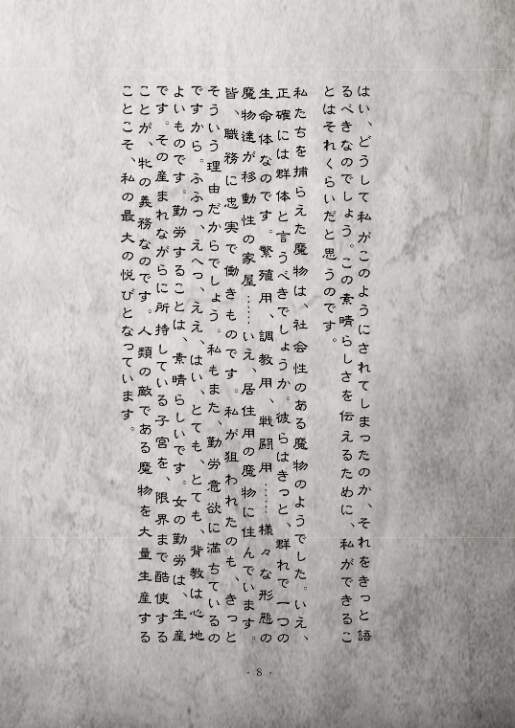 はい、どうして私がこのようにされてしまったのか、それをきっと語
るべきなのでしょう。この素晴らしさを伝えるために、私ができるこ
とはそれくらいだと思うのです。
私たちを捕らえた魔物は、社会性のある魔物のようでした。いえ、
正確には群体と言うべきでしょうか。彼らはきっと、群れで一つの
生命体なのです。繁殖用、調教用、戦闘用……様々な形態の
魔物達が移動性の家屋……いえ、居住用の魔物に住んでいます。
皆、職務に忠実で働きものです。私が狙われたのも、きっと
そういう理由だからでしょう。私もまた、勤労意欲に満ちているの
ですから。ふふっ、えへっ、ええ、はい、とても、とても、背教は心地
よいものです。勤労することは、素晴らしいです。女の勤労は、生産
です。その産まれながらに所持している子宮を、限界まで酷使する
ことが、牝の義務なのです。人類の敵である魔物を大量生産する
ことこそ、私の最大の悦びとなっています。
- 8 -